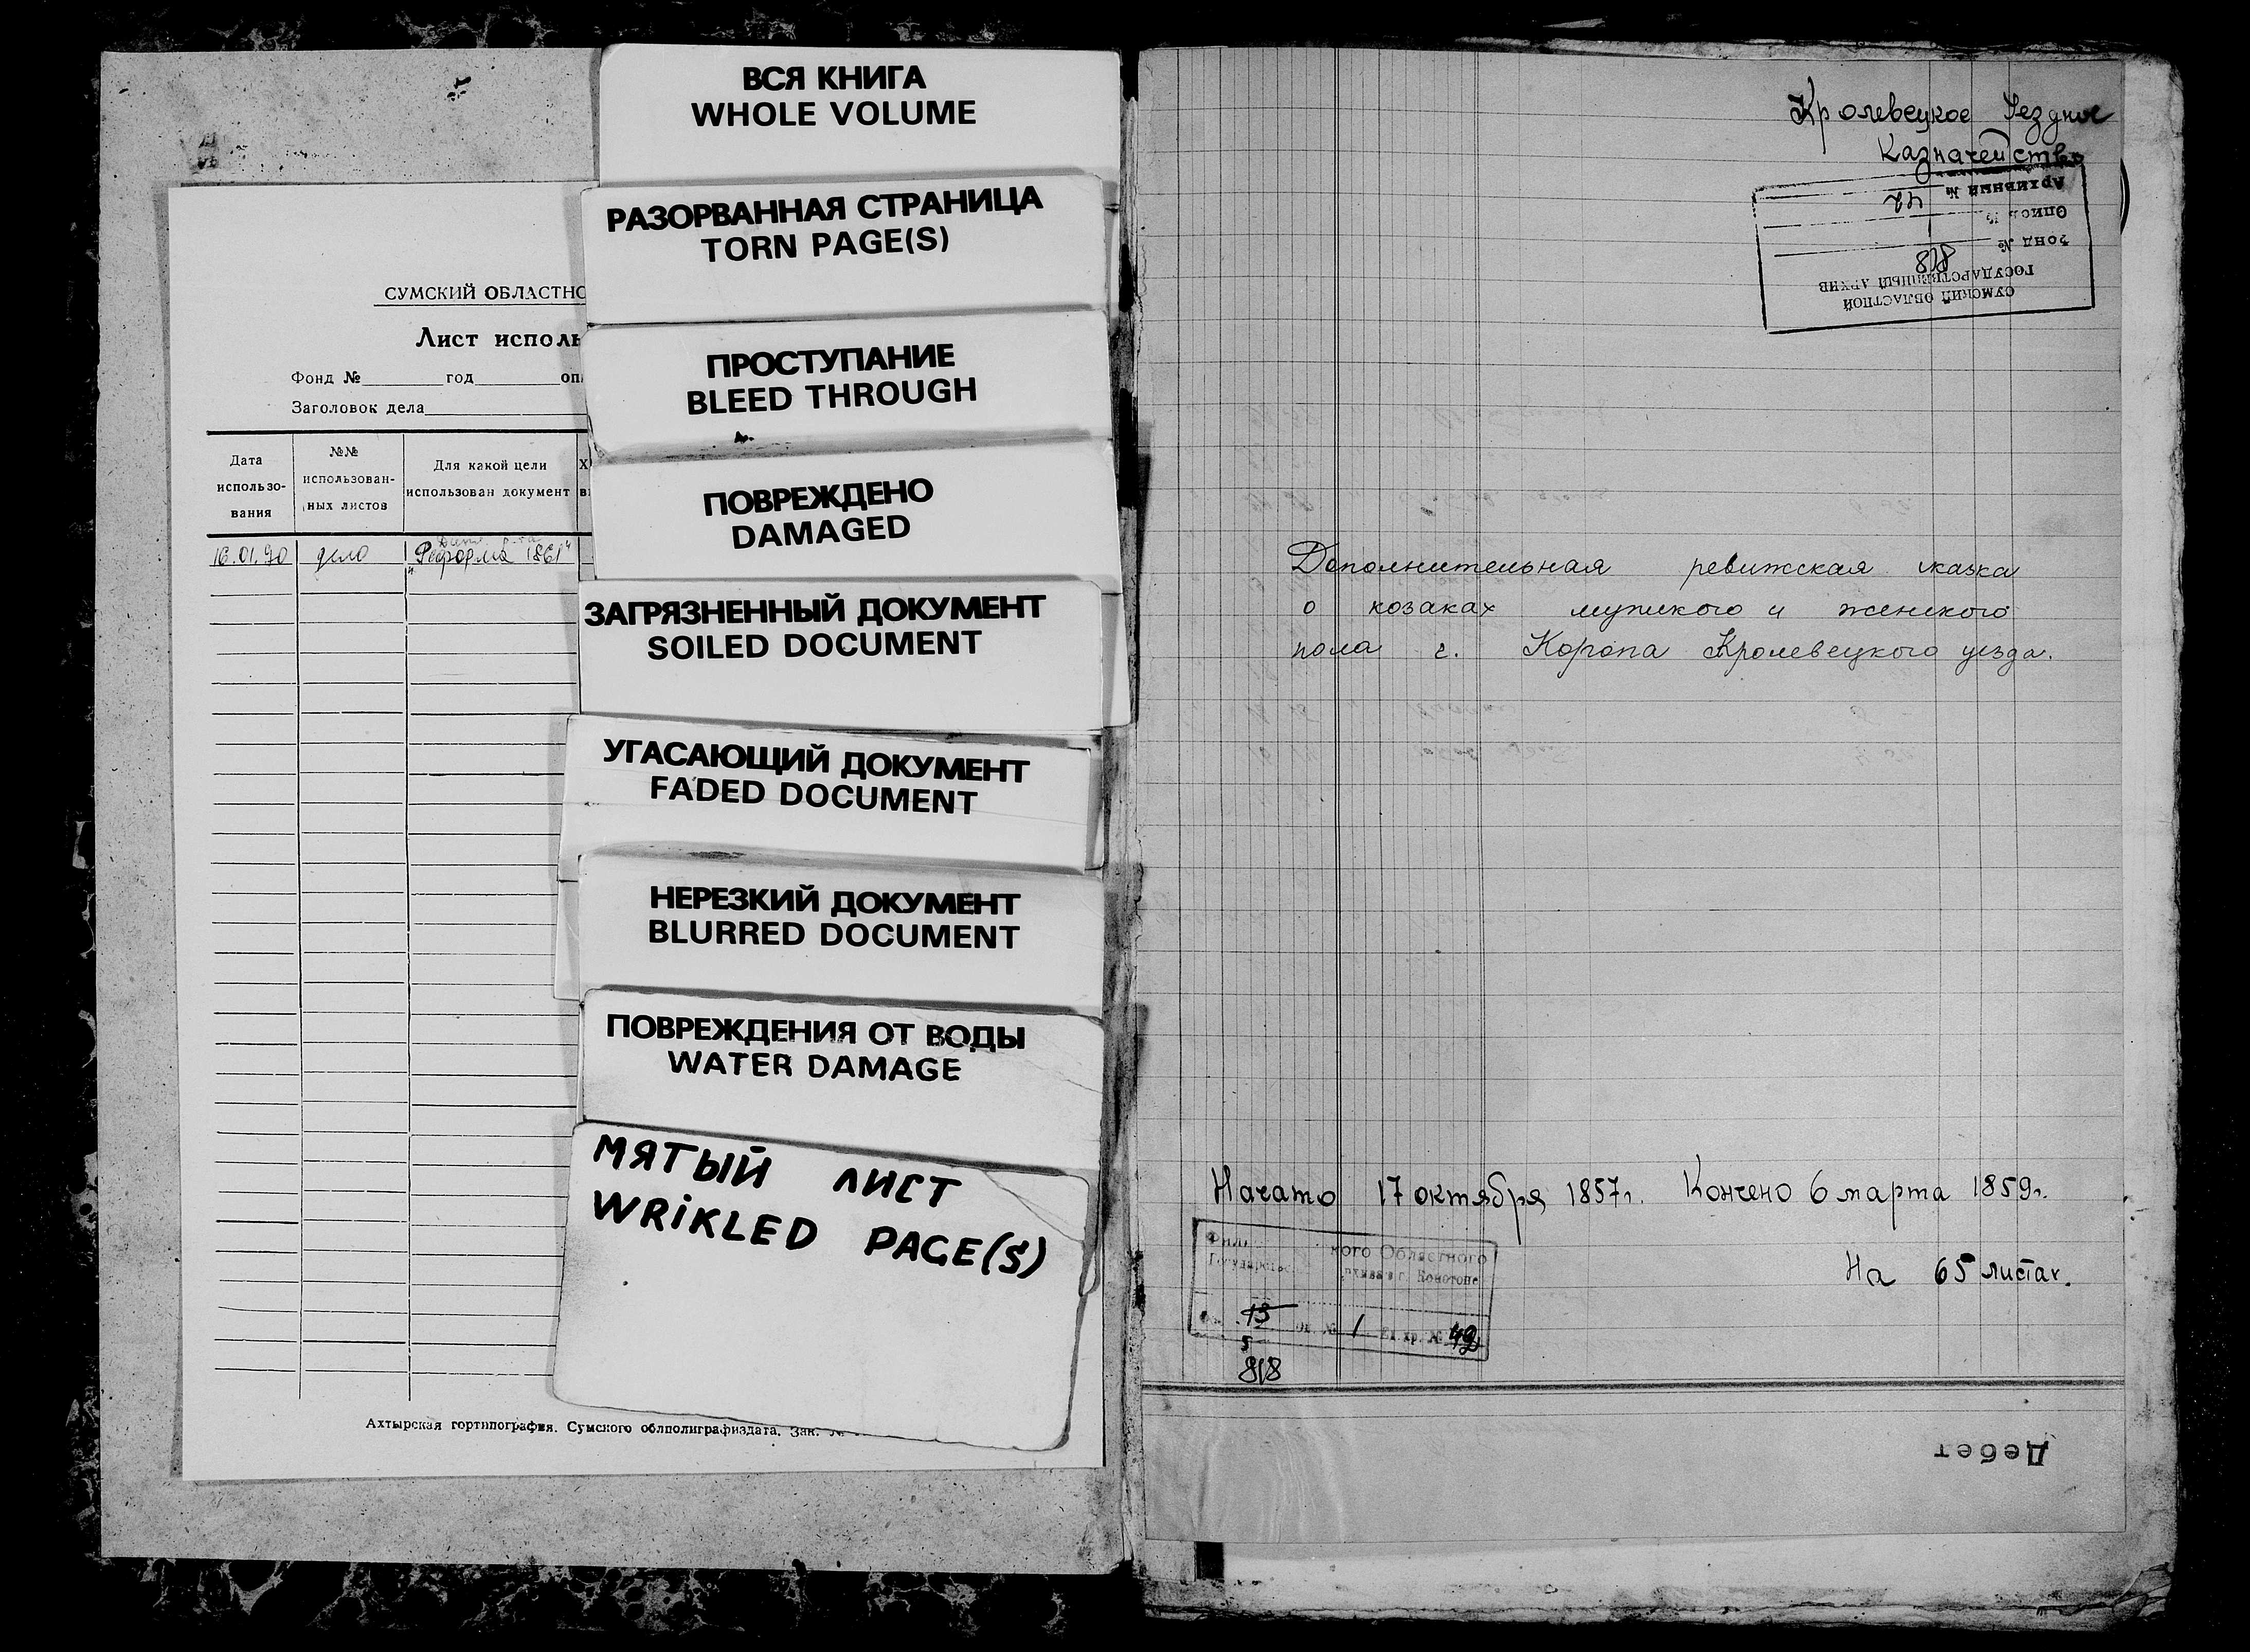 СУМСКИЙ ОБЛАСТНО
Лист исполь
Фонд № год оп
Заголовок дела
Дата использо-вания
№№ использован-ных листов
Для какой цели использован документ
16.01.90 дело "Реформа 1861"
Ахтырская гортипография. Сумского облполиграфиздата. Зак. №
ВСЯ КНИГА
WHOLE VOLUME
РАЗОРВАННАЯ СТРАНИЦА
TORN PAGE(S)
ПРОСТУПАНИЕ
BLEED THROUGH
ПОВРЕЖДЕНО
DAMAGED
ЗАГРЯЗНЕННЫЙ ДОКУМЕНТ
SOILED DOCUMENT
УГАСАЮЩИЙ ДОКУМЕНТ
FADED DOCUMENT
НЕРЕЗКИЙ ДОКУМЕНТ
BLURRED DOCUMENT
ПОВРЕЖДЕНИЯ ОТ ВОДЫ
WATER DAMAGE
МЯТЫЙ ЛИСТ
WRIKLED PAGE(S)
Кролевецкое Уездное
Казначейство
СУМСКИЙ ОБЛАСТНОЙ
ГОСУДАРСТВЕННЫЙ АРХИВ
Фонд № 818
Опись №
Архивный №
Дополнительная ревижская сказка
о козаках мужского и женского
пола г. Коропа Кролевецкого уезда.
Начато 17 октября 1857г. Кончено 6 марта 1859г.
На 65 листах.
ного Областного
архива в г. Конотопе
15 оп. № 1 Ед. хр. № 49
5
818
Дебет